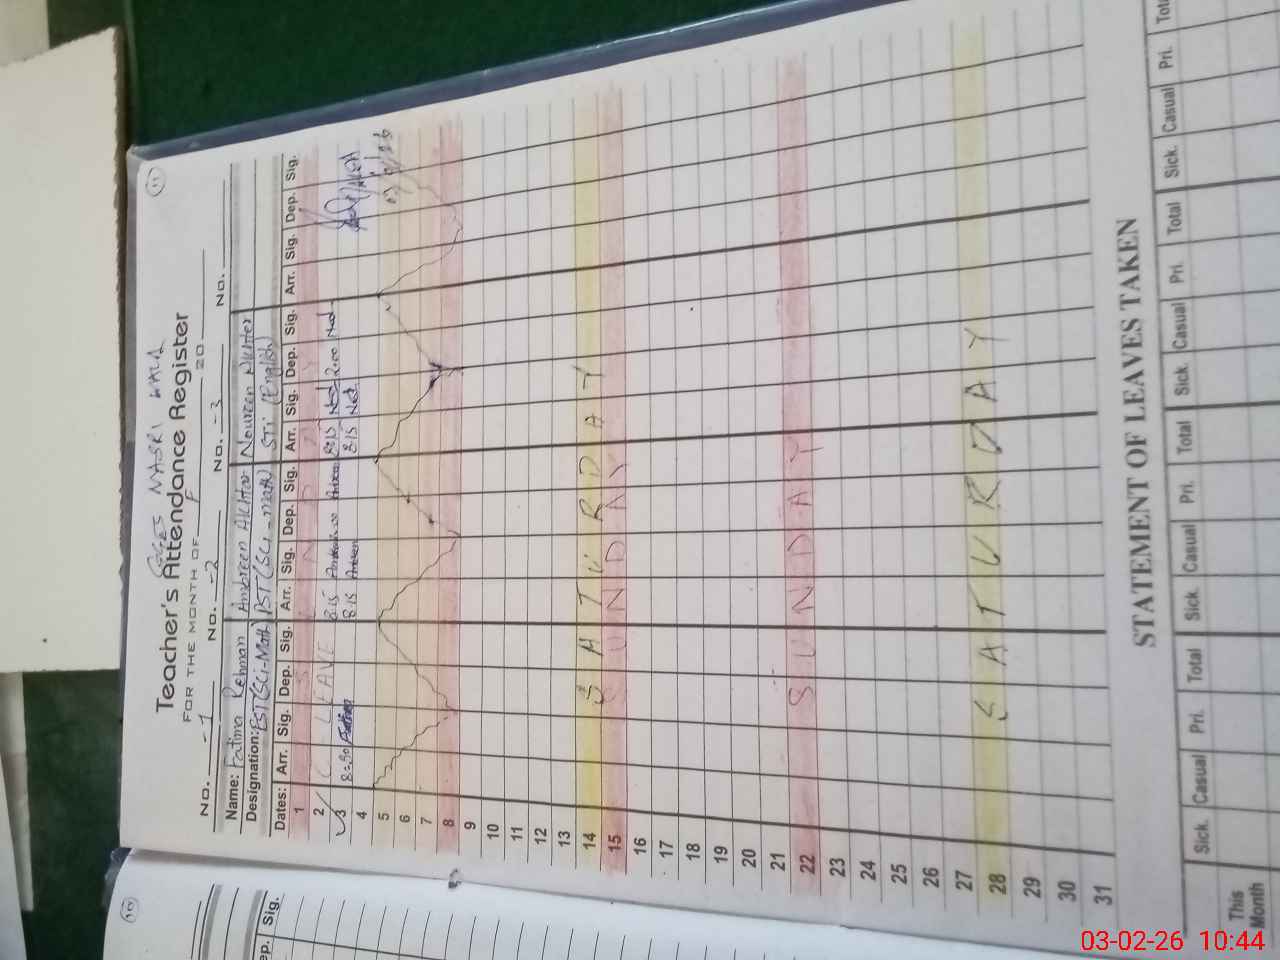 11
GGES NASRI WALA
Teacher's Attendance Register
FOR THE MONTH OF F 20
No. - 1 No. - 2 No. - 3 No.
Name: Fatima Rehman Ambreen Akhtar Noureen Akhter
Designation: EST(Sci-Math) PST(Sci-math) STi (English)
Dates: Arr. Sig. Dep. Sig. Arr. Sig. Dep. Sig. Arr. Sig. Dep. Sig. Arr. Sig. Dep. Sig.
1 S U N D A Y
2 C LEAVE 8:15 2:00 8:15 2:00
3 8:30 8:15 8:15
4
5
6
7
8
9
10
11
12
13
14 S A T U R D A Y
15 S U N D A Y
16
17
18
19
20
21
22 S U N D A Y
23
24
25
26
27
28 S A T U R D A Y
29
30
31
STATEMENT OF LEAVES TAKEN
Sick. Casual Pri. Total Sick. Casual Pri. Total Sick. Casual Pri. Total Sick. Casual Pri.
This Month
10
ep. Sig.
03-02-26 10:44